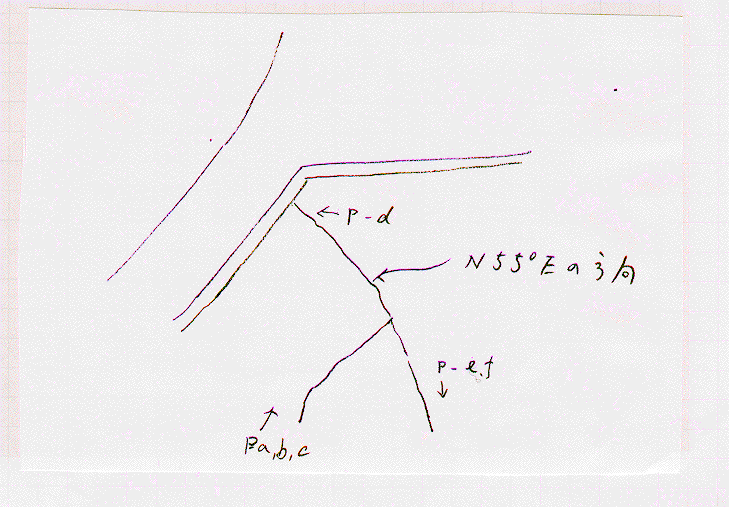 ←P-d
N55°Eの方向
P-e,f
↓
↑
Pa,b,c